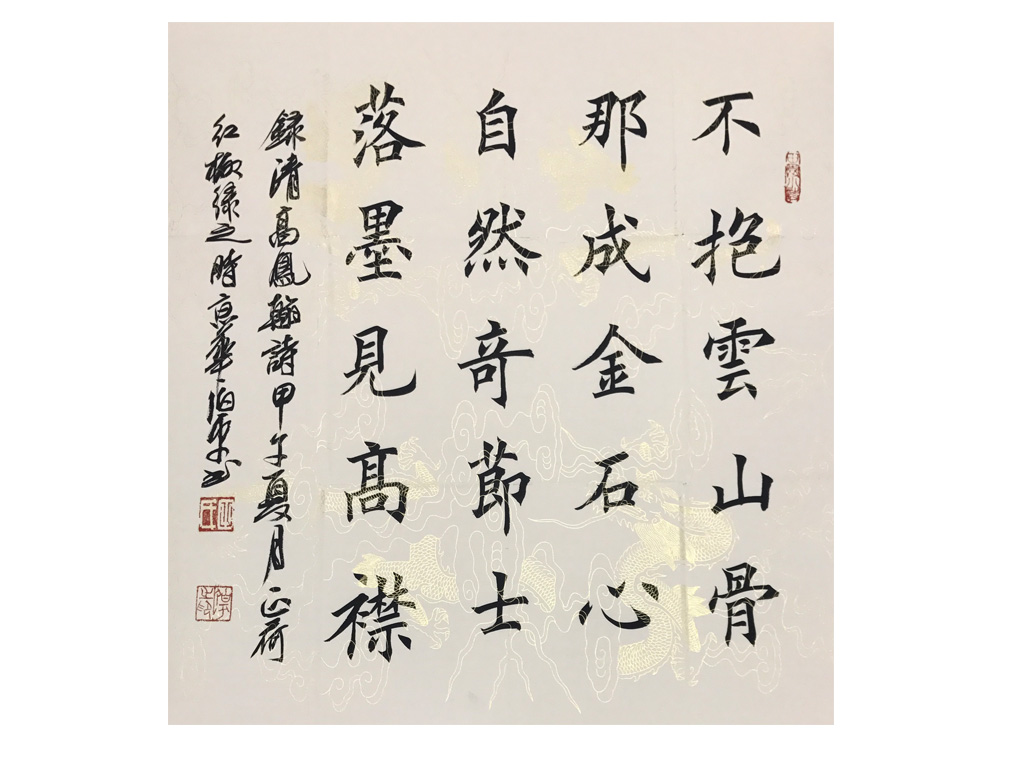 不抱雲山骨
那成金石心
自然奇節士
落墨見高襟
録清高鳳翰詩甲午夏月正荷
紅柳緑之時京華伯